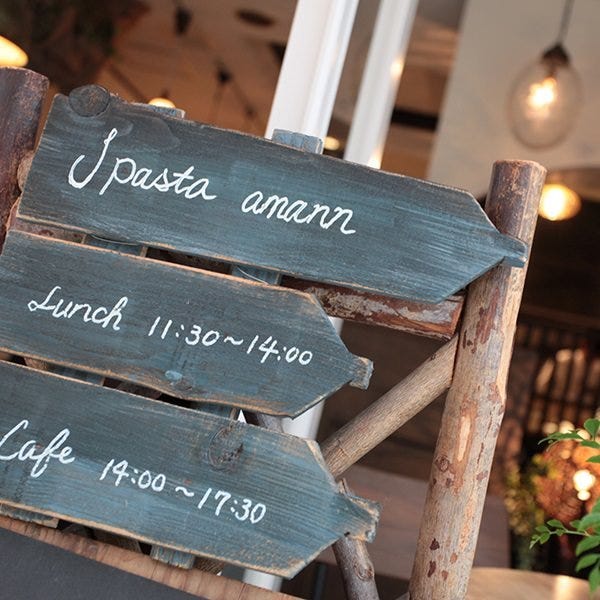 J pasta amann
Lunch 11:30~14:00
Cafe 14:00~17:30